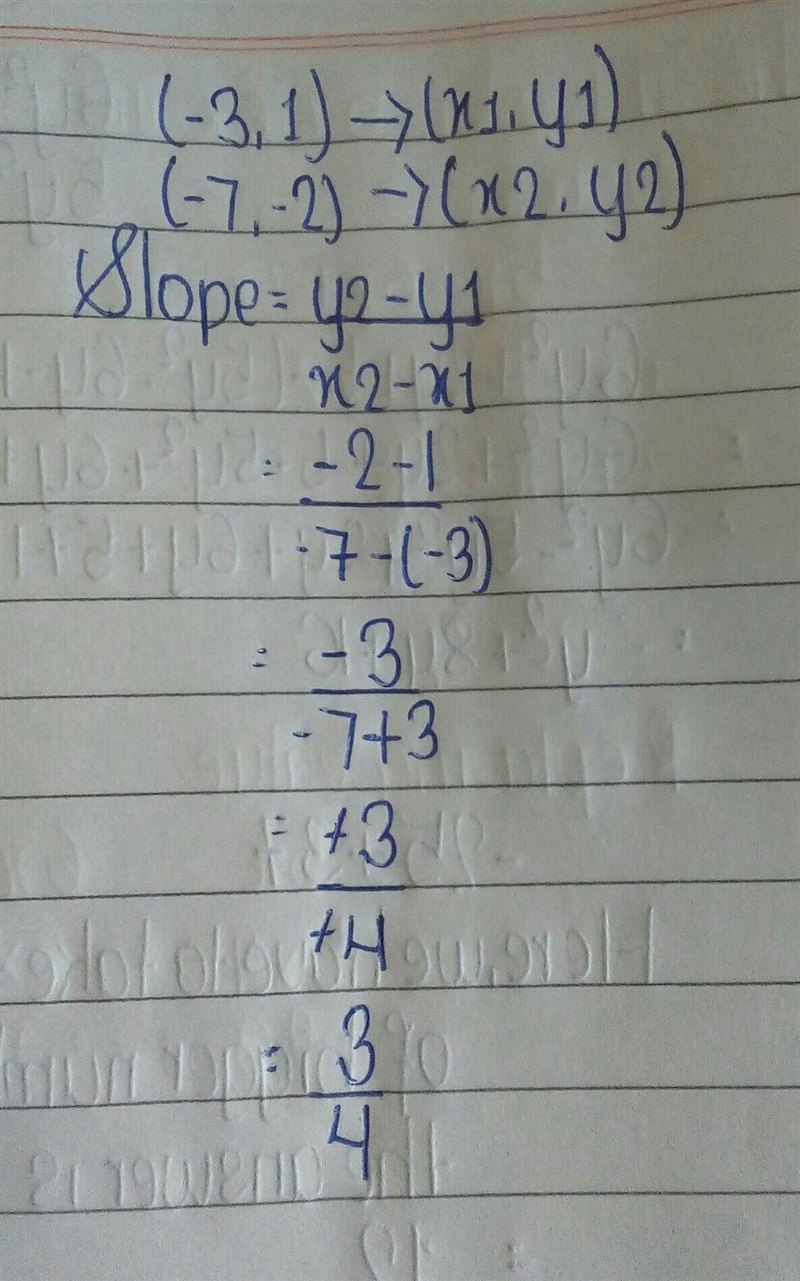 (-3, 1) →(x1, y1)
(-7, -2) →(x2, y2)
Slope = y2 - y1
x2 - x1
= -2 - 1
-7 - (-3)
= -3
-7+3
= +3
+4
= 3
4